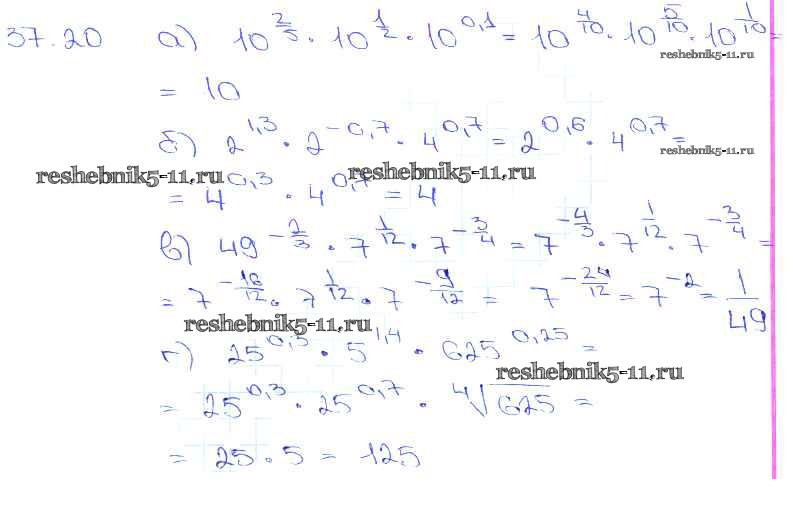 37.20 а) 10^{2/5} · 10^{1/2} · 10^{0,1} = 10^{4/10} · 10^{5/10} · 10^{1/10} =
reshebnik5-11.ru
= 10
б) 2^{1,3} · 2^{-0,7} · 4^{0,7} = 2^{0,6} · 4^{0,7} =
reshebnik5-11.ru
reshebnik5-11.ru reshebnik5-11.ru
= 4^{0,3} · 4^{0,7} = 4
в) 49^{-2/3} · 7^{1/12} · 7^{-3/4} = 7^{-4/3} · 7^{1/12} · 7^{-3/4} =
= 7^{-16/12} · 7^{1/12} · 7^{-9/12} = 7^{-24/12} = 7^{-2} = 1/49
reshebnik5-11.ru
г) 25^{0,3} · 5^{1,4} · 625^{0,25} =
reshebnik5-11.ru
= 25^{0,3} · 25^{0,7} · ⁴√625 =
= 25 · 5 = 125